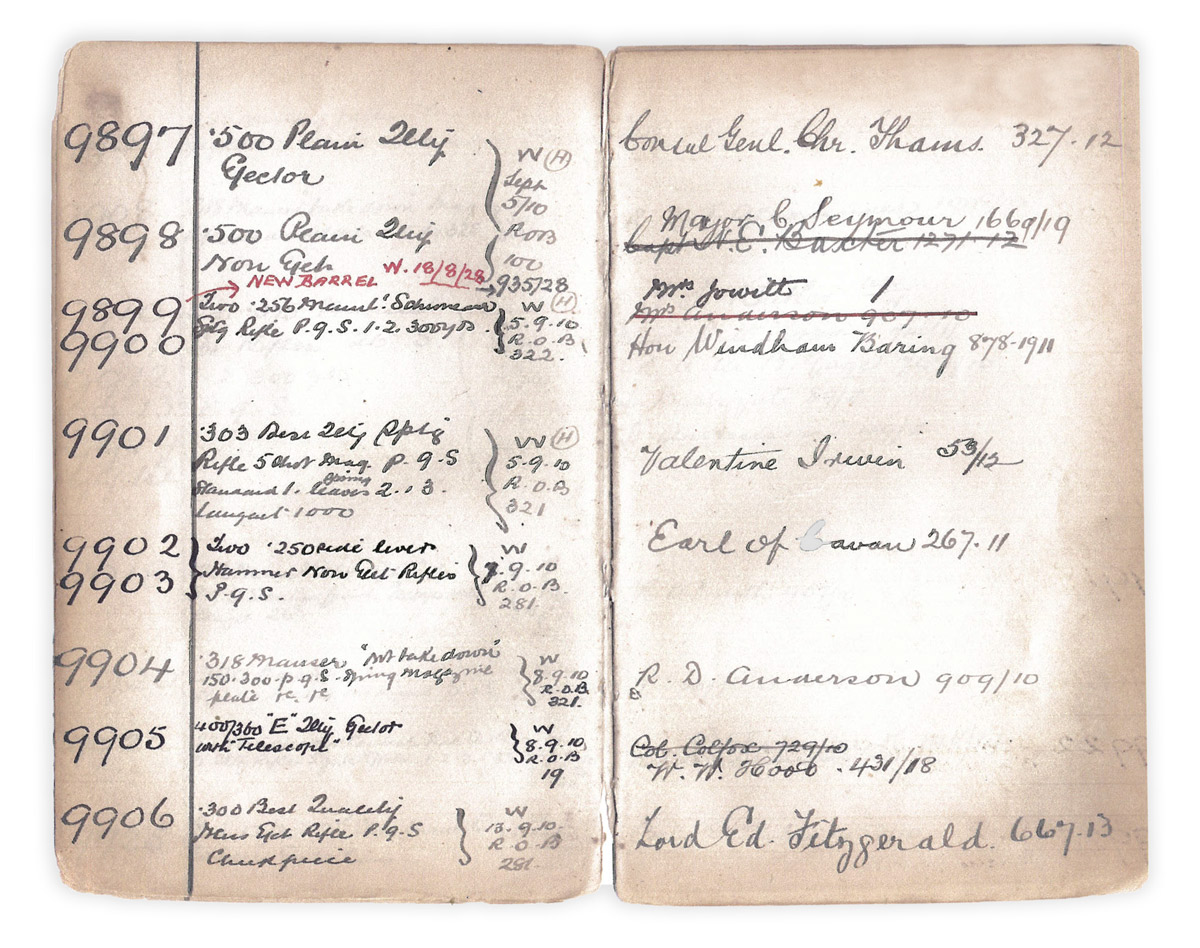 9897 .500 Plain Qlty W (H) Consul Genl. Chr. Thams. 327.12
Ejector Sept
5/10
9898 .500 Plain Qlty ROB Major C. Seymour 1669/19
Non Ejct 100 Capt H. C. Baxter 1271-12
NEW BARREL W. 18/8/28 935/28
9899 Two .256 Mannl. Schoneaur W (H) Mrs Jowitt 1
Sptg Rifle P.g.S. 1.2.300yds 5.9.10 Mrs Anderson 907-10
9900 R.O.B Hon Windham Baring 878-1911
322.
9901 .303 Best Qlty Sptg W (H)
Rifle 5 Shot Mag. P.g.S 5.9.10 Valentine Irwin 53/12
Standard 1. leaves 2.3 R.O.B
Tangent 1000 321
9902 Two .250 side lever W Earl of Cavan 267.11
9903 Hammer Non Ejct Rifles 7.9.10
P.g.S. R.O.B
281.
9904 .318 Mauser "Not take down" W
150.300.p.g.S. Spring Magazine 8.9.10 R. D. Anderson 909/10
plate R.O.B
321.
9905 400/360 "E" Qlty Ejector W
with "Telescope" 8.9.10 Col. Colfox 729/10
R.O.B W. W. Hood. 431/18
19
9906 .300 Best Quality W
Ejct Rifle P.g.S 13.9.10. Lord Ed. Fitzgerald. 667.13
Cheekpiece R.O.B
281.